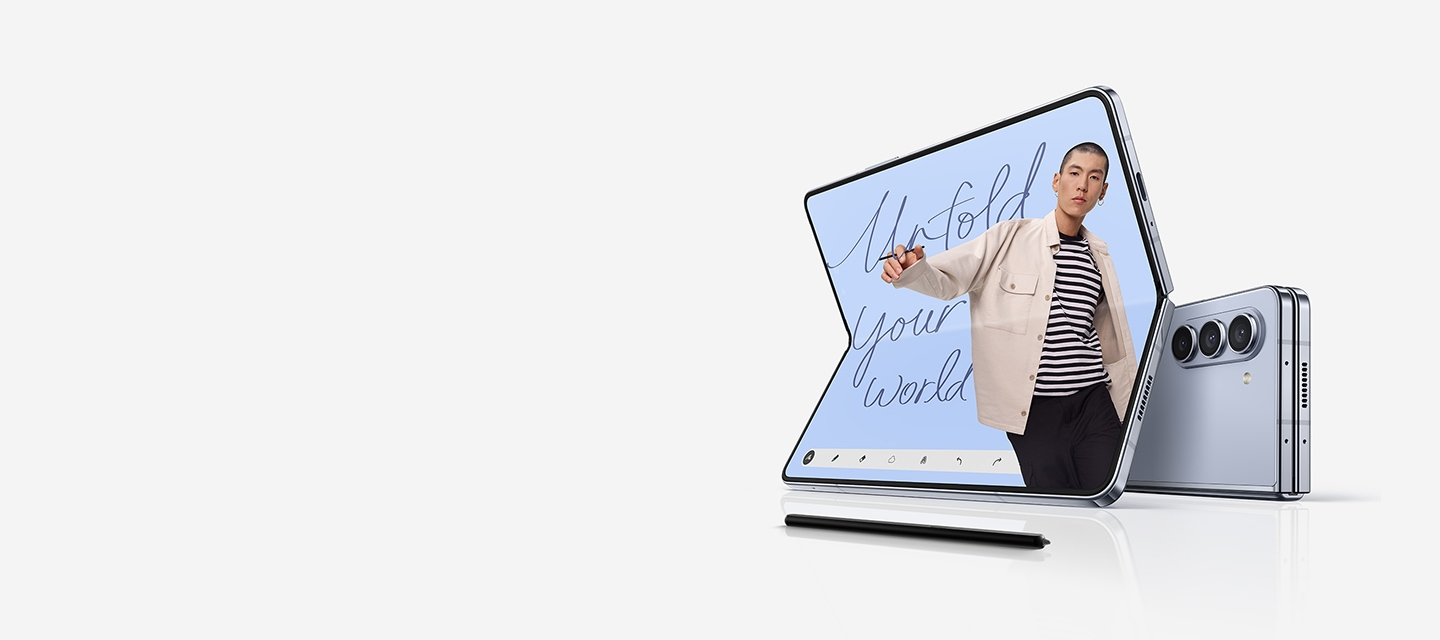 Unfold
your
world